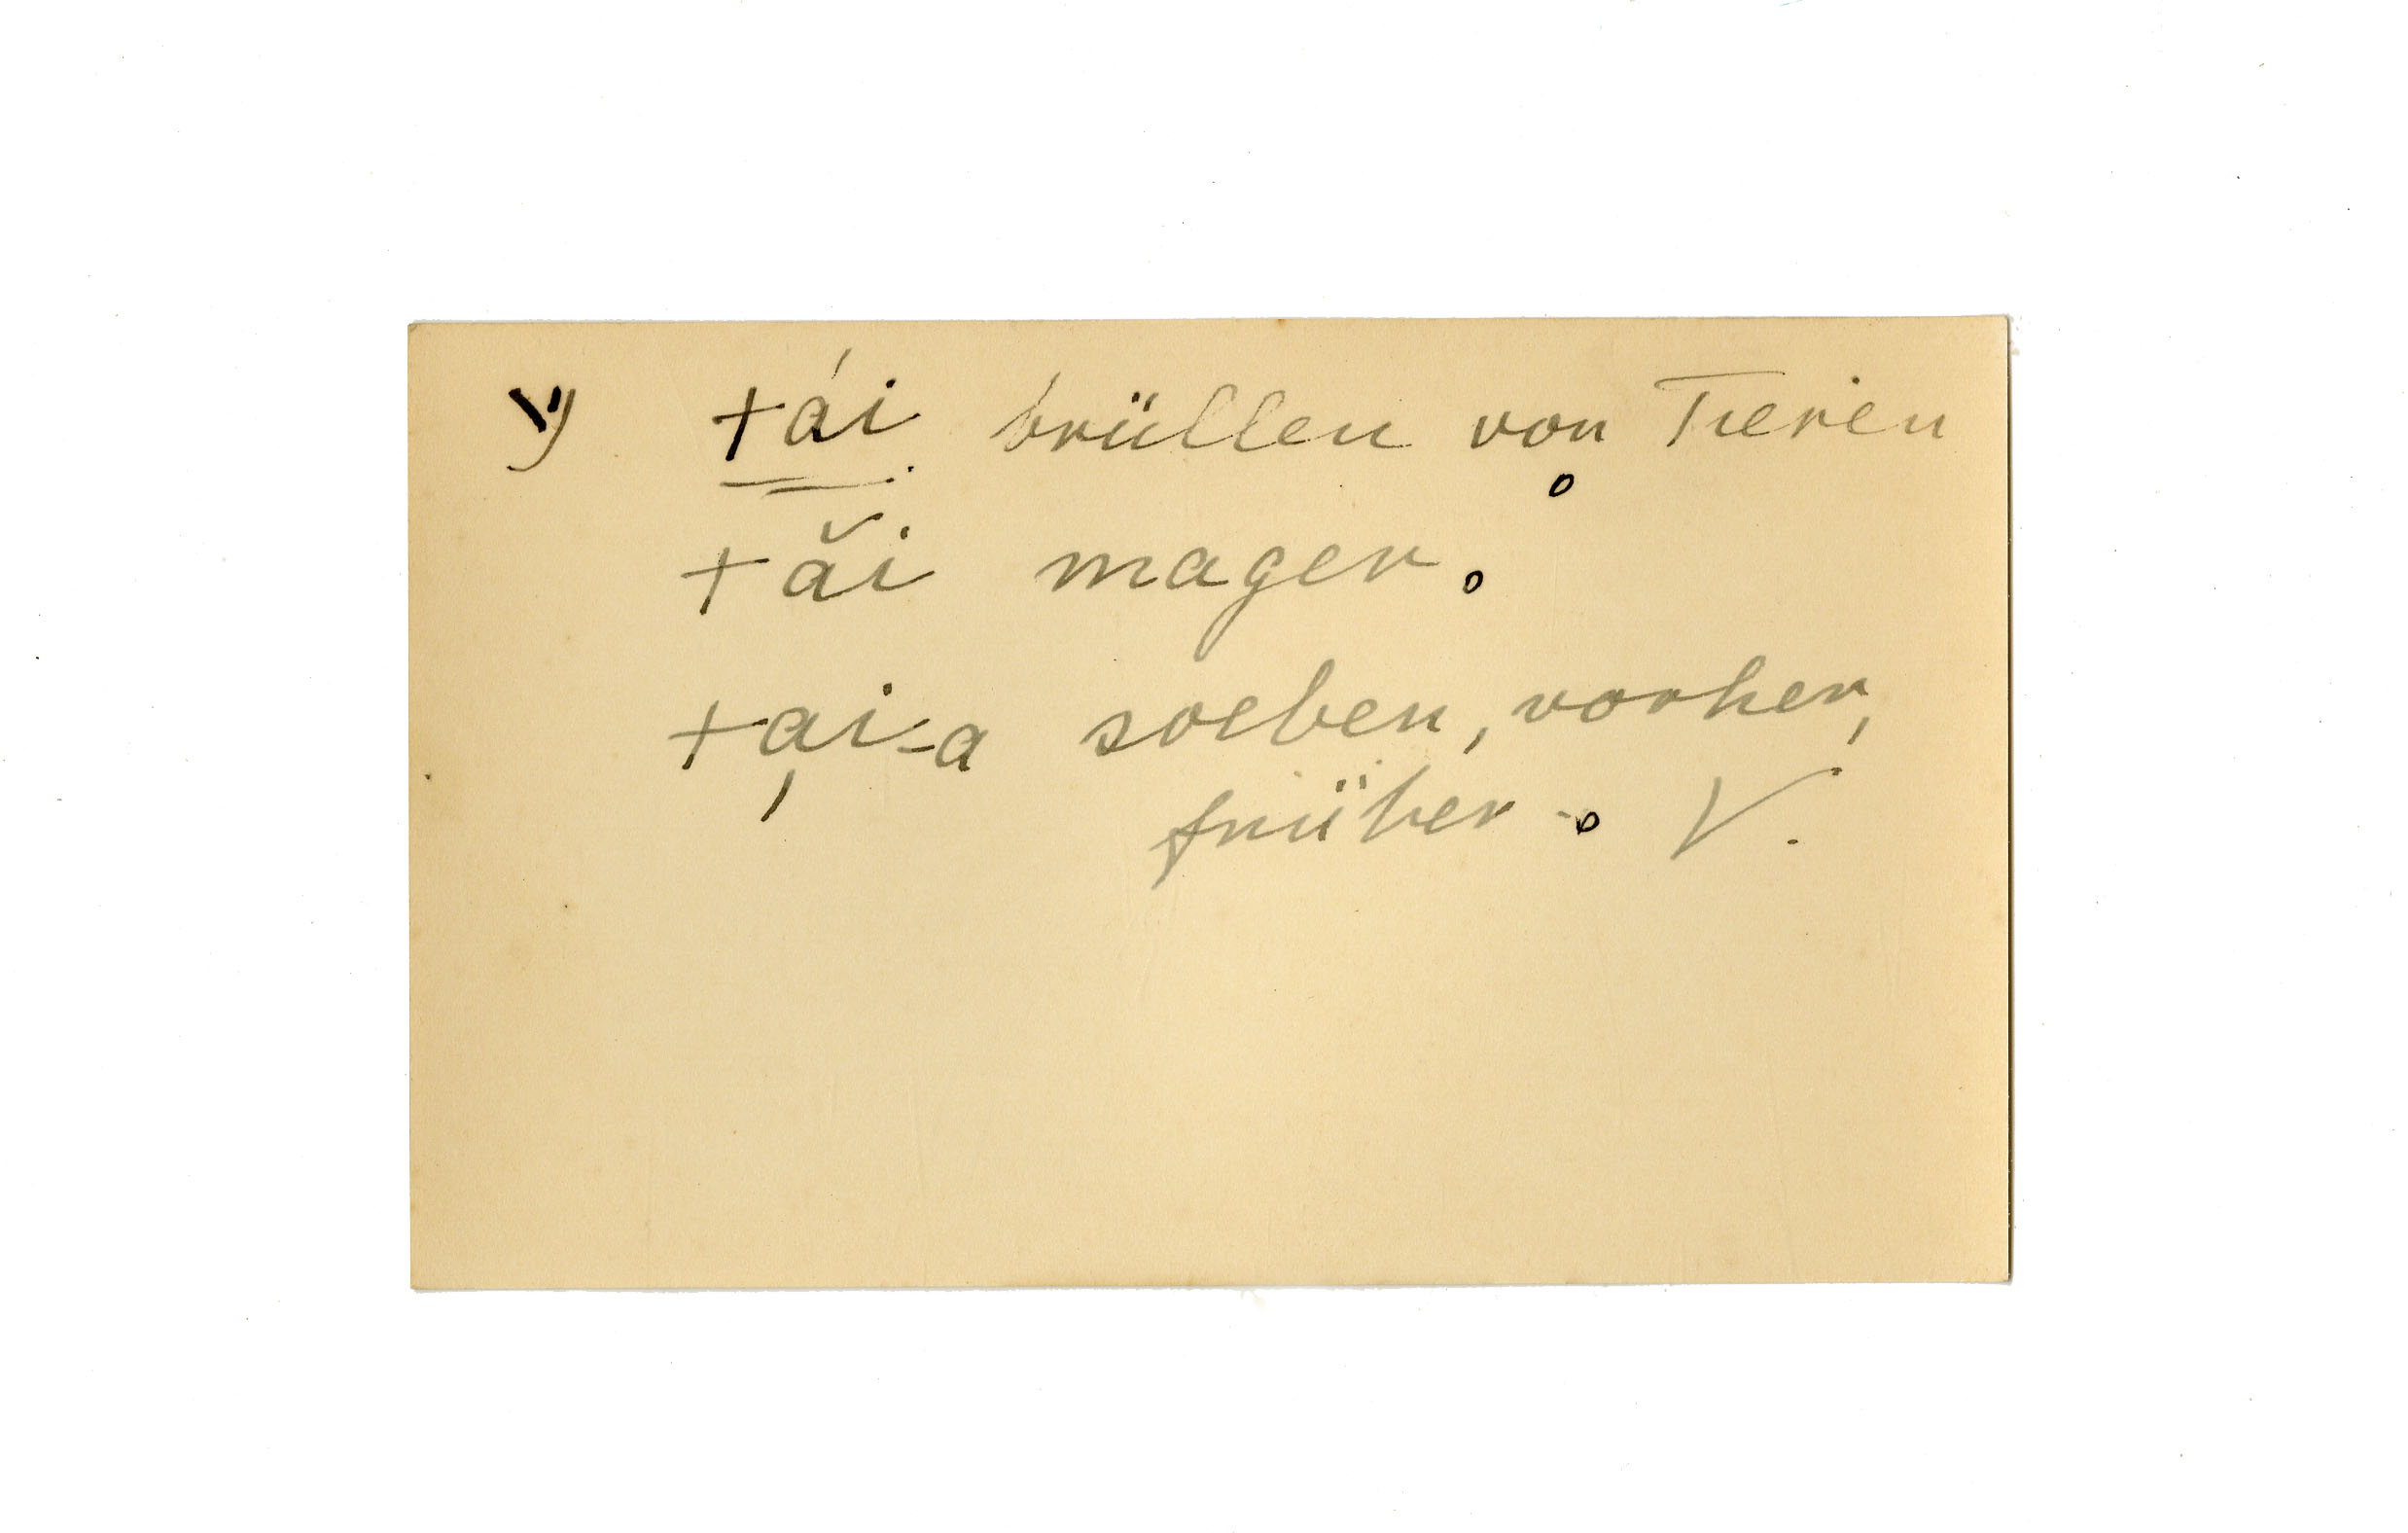 tái brüllen von Tieren
tǎi mager.
ta̗i-a soeben, vorher,
früher. V.